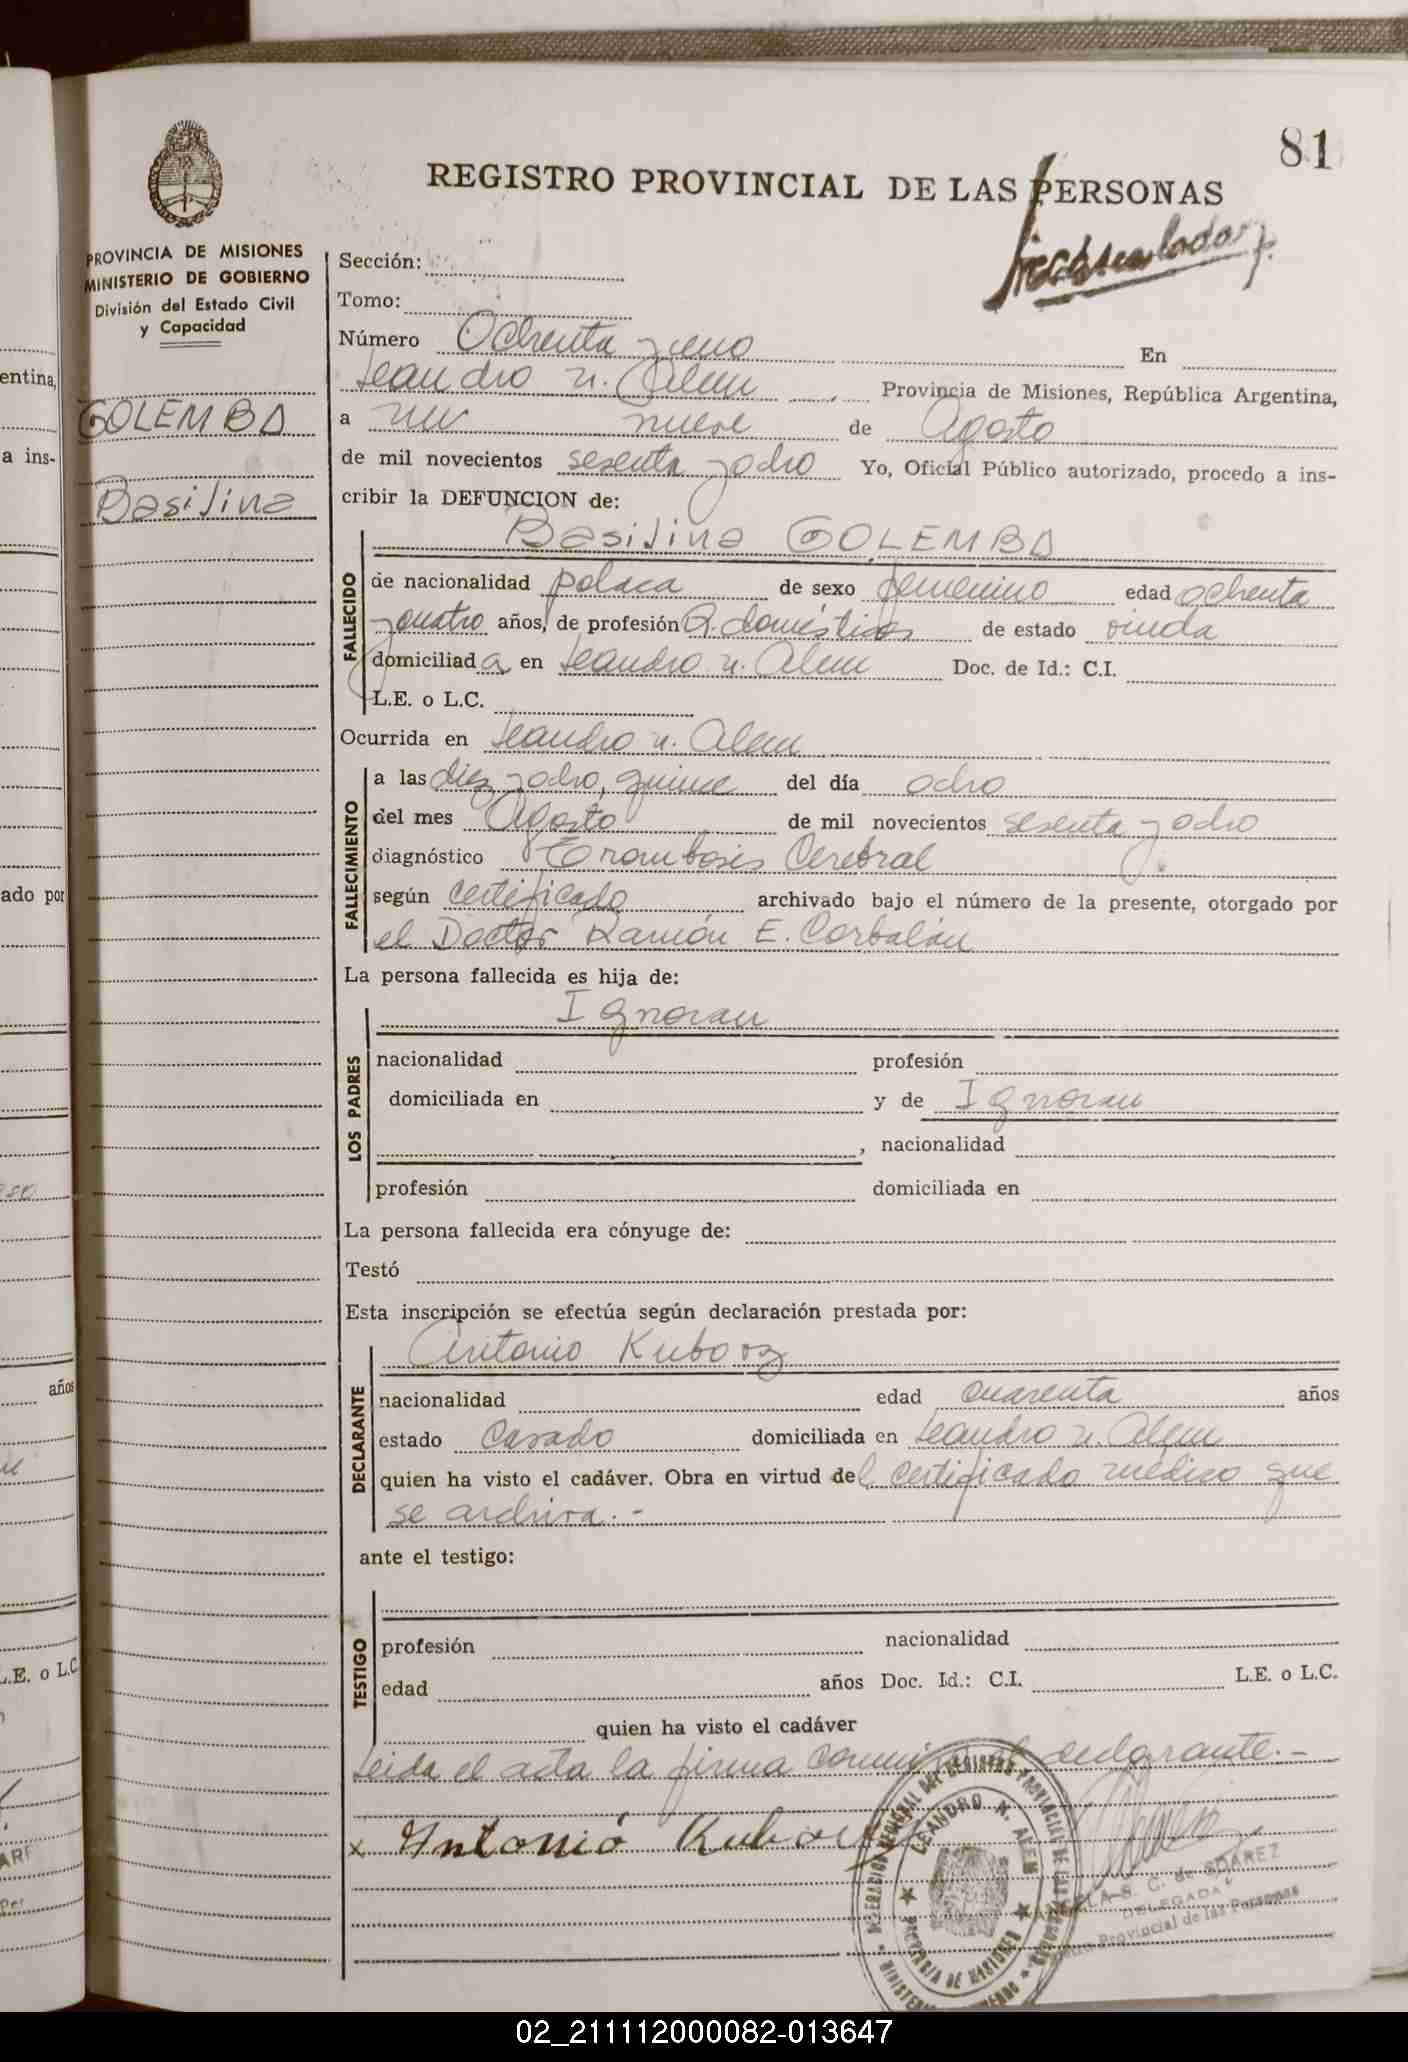 81
REGISTRO PROVINCIAL DE LAS PERSONAS
PROVINCIA DE MISIONES
MINISTERIO DE GOBIERNO
División del Estado Civil
y Capacidad
GOLEMBA
Basilina
Sección:
Tomo:
Número Ochenta y uno En
Leandro N. Alem Provincia de Misiones, República Argentina,
a nueve de Agosto
de mil novecientos sesenta y ocho Yo, Oficial Público autorizado, procedo a ins-
cribir la DEFUNCION de:
Basilina GOLEMBA
FALLECIDO
de nacionalidad polaca de sexo femenino edad ochenta
y cuatro años, de profesión Q. domésticos de estado viuda
domiciliada en Leandro N. Alem Doc. de Id.: C.I.
L.E. o L.C.
Ocurrida en Leandro N. Alem
FALLECIMIENTO
a las diez y ocho, quince del día ocho
del mes Agosto de mil novecientos sesenta y ocho
diagnóstico Trombosis Cerebral
según certificado archivado bajo el número de la presente, otorgado por
el Doctor Ramón E. Corbalán
La persona fallecida es hija de:
LOS PADRES
Ignoran
nacionalidad profesión
domiciliada en y de Ignoran
, nacionalidad
profesión domiciliada en
La persona fallecida era cónyuge de:
Testó
Esta inscripción se efectúa según declaración prestada por:
DECLARANTE
Antonio Kuborz
nacionalidad edad cuarenta años
estado Casado domiciliada en Leandro N. Alem
quien ha visto el cadáver. Obra en virtud del certificado médico que
se archiva.-
ante el testigo:
TESTIGO
profesión nacionalidad
edad años Doc. Id.: C.I. L.E. o L.C.
quien ha visto el cadáver
Leida el acta la firma conmigo el declarante.-
x Antonió
LEANDRO N. ALEM
PROVINCIA DE MISIONES
S. C. de SUAREZ
DELEGADA
Provincial de las Personas
entina,
a ins-
ado por
años
L.E. o L.C
02_211112000082-013647